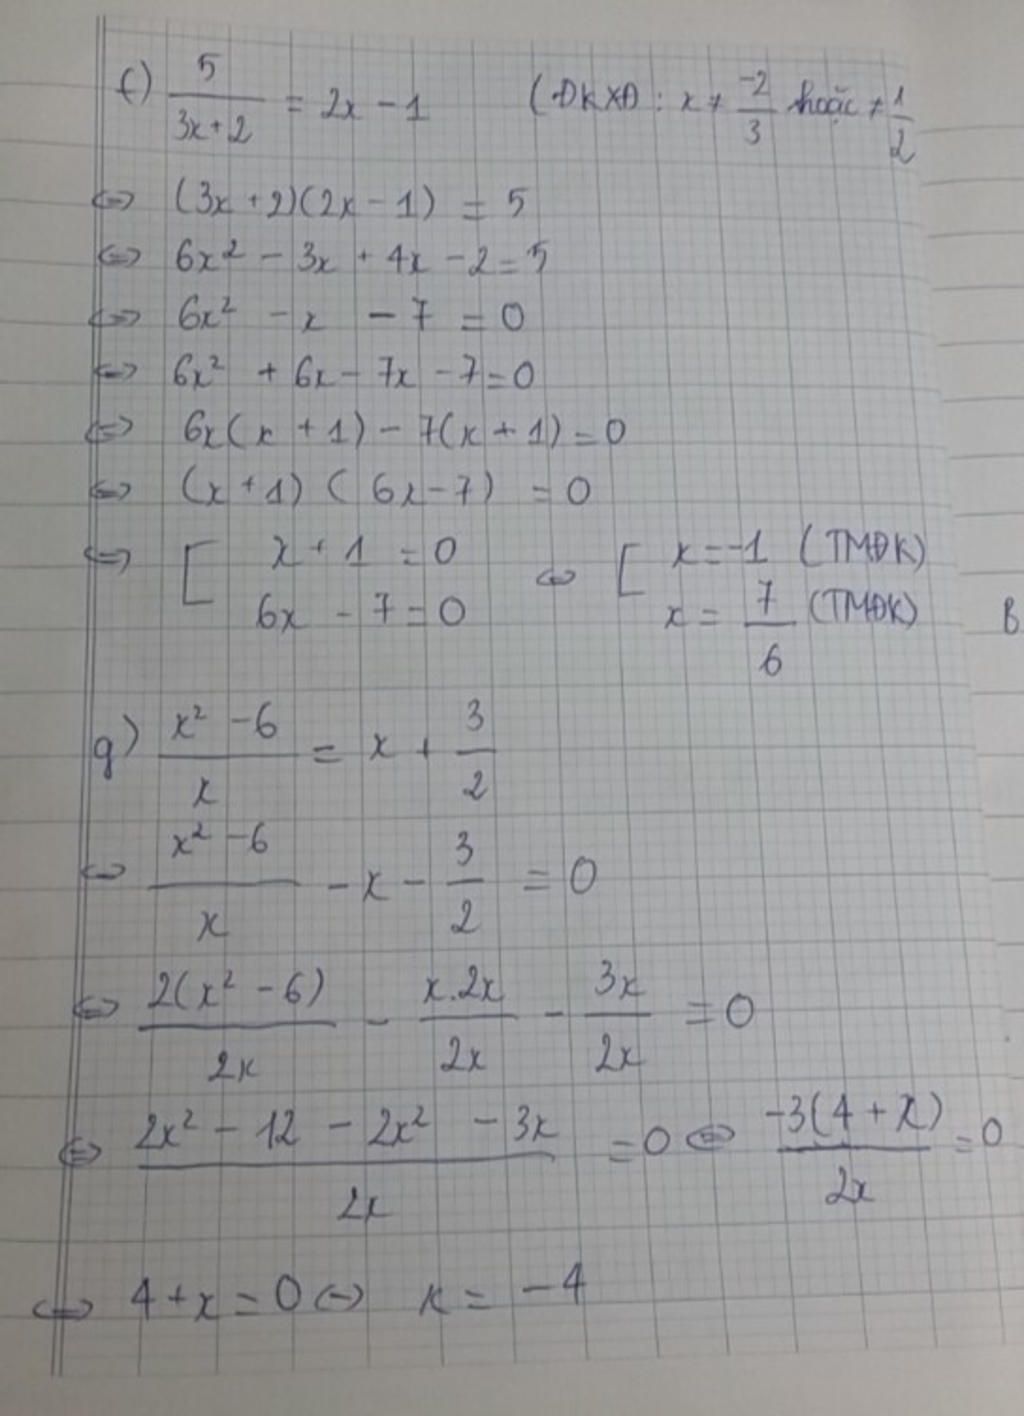 f) 5/(3x+2) = 2x - 1 (ĐKXĐ: x ≠ -2/3 hoặc ≠ 1/2
⇔ (3x + 2)(2x - 1) = 5
⇔ 6x² - 3x + 4x - 2 = 5
⇔ 6x² - x - 7 = 0
⇔ 6x² + 6x - 7x - 7 = 0
⇔ 6x(x + 1) - 7(x + 1) = 0
⇔ (x + 1)(6x - 7) = 0
⇔ [ x + 1 = 0 ⇔ [ x = -1 (TMĐK)
6x - 7 = 0 x = 7/6 (TMĐK)
B
g) (x² - 6)/x = x + 3/2
⇔ (x² - 6)/x - x - 3/2 = 0
⇔ 2(x² - 6)/2x - x.2x/2x - 3x/2x = 0
⇔ (2x² - 12 - 2x² - 3x)/2x = 0 ⇔ -3(4 + x)/2x = 0
⇔ 4 + x = 0 ⇔ x = -4